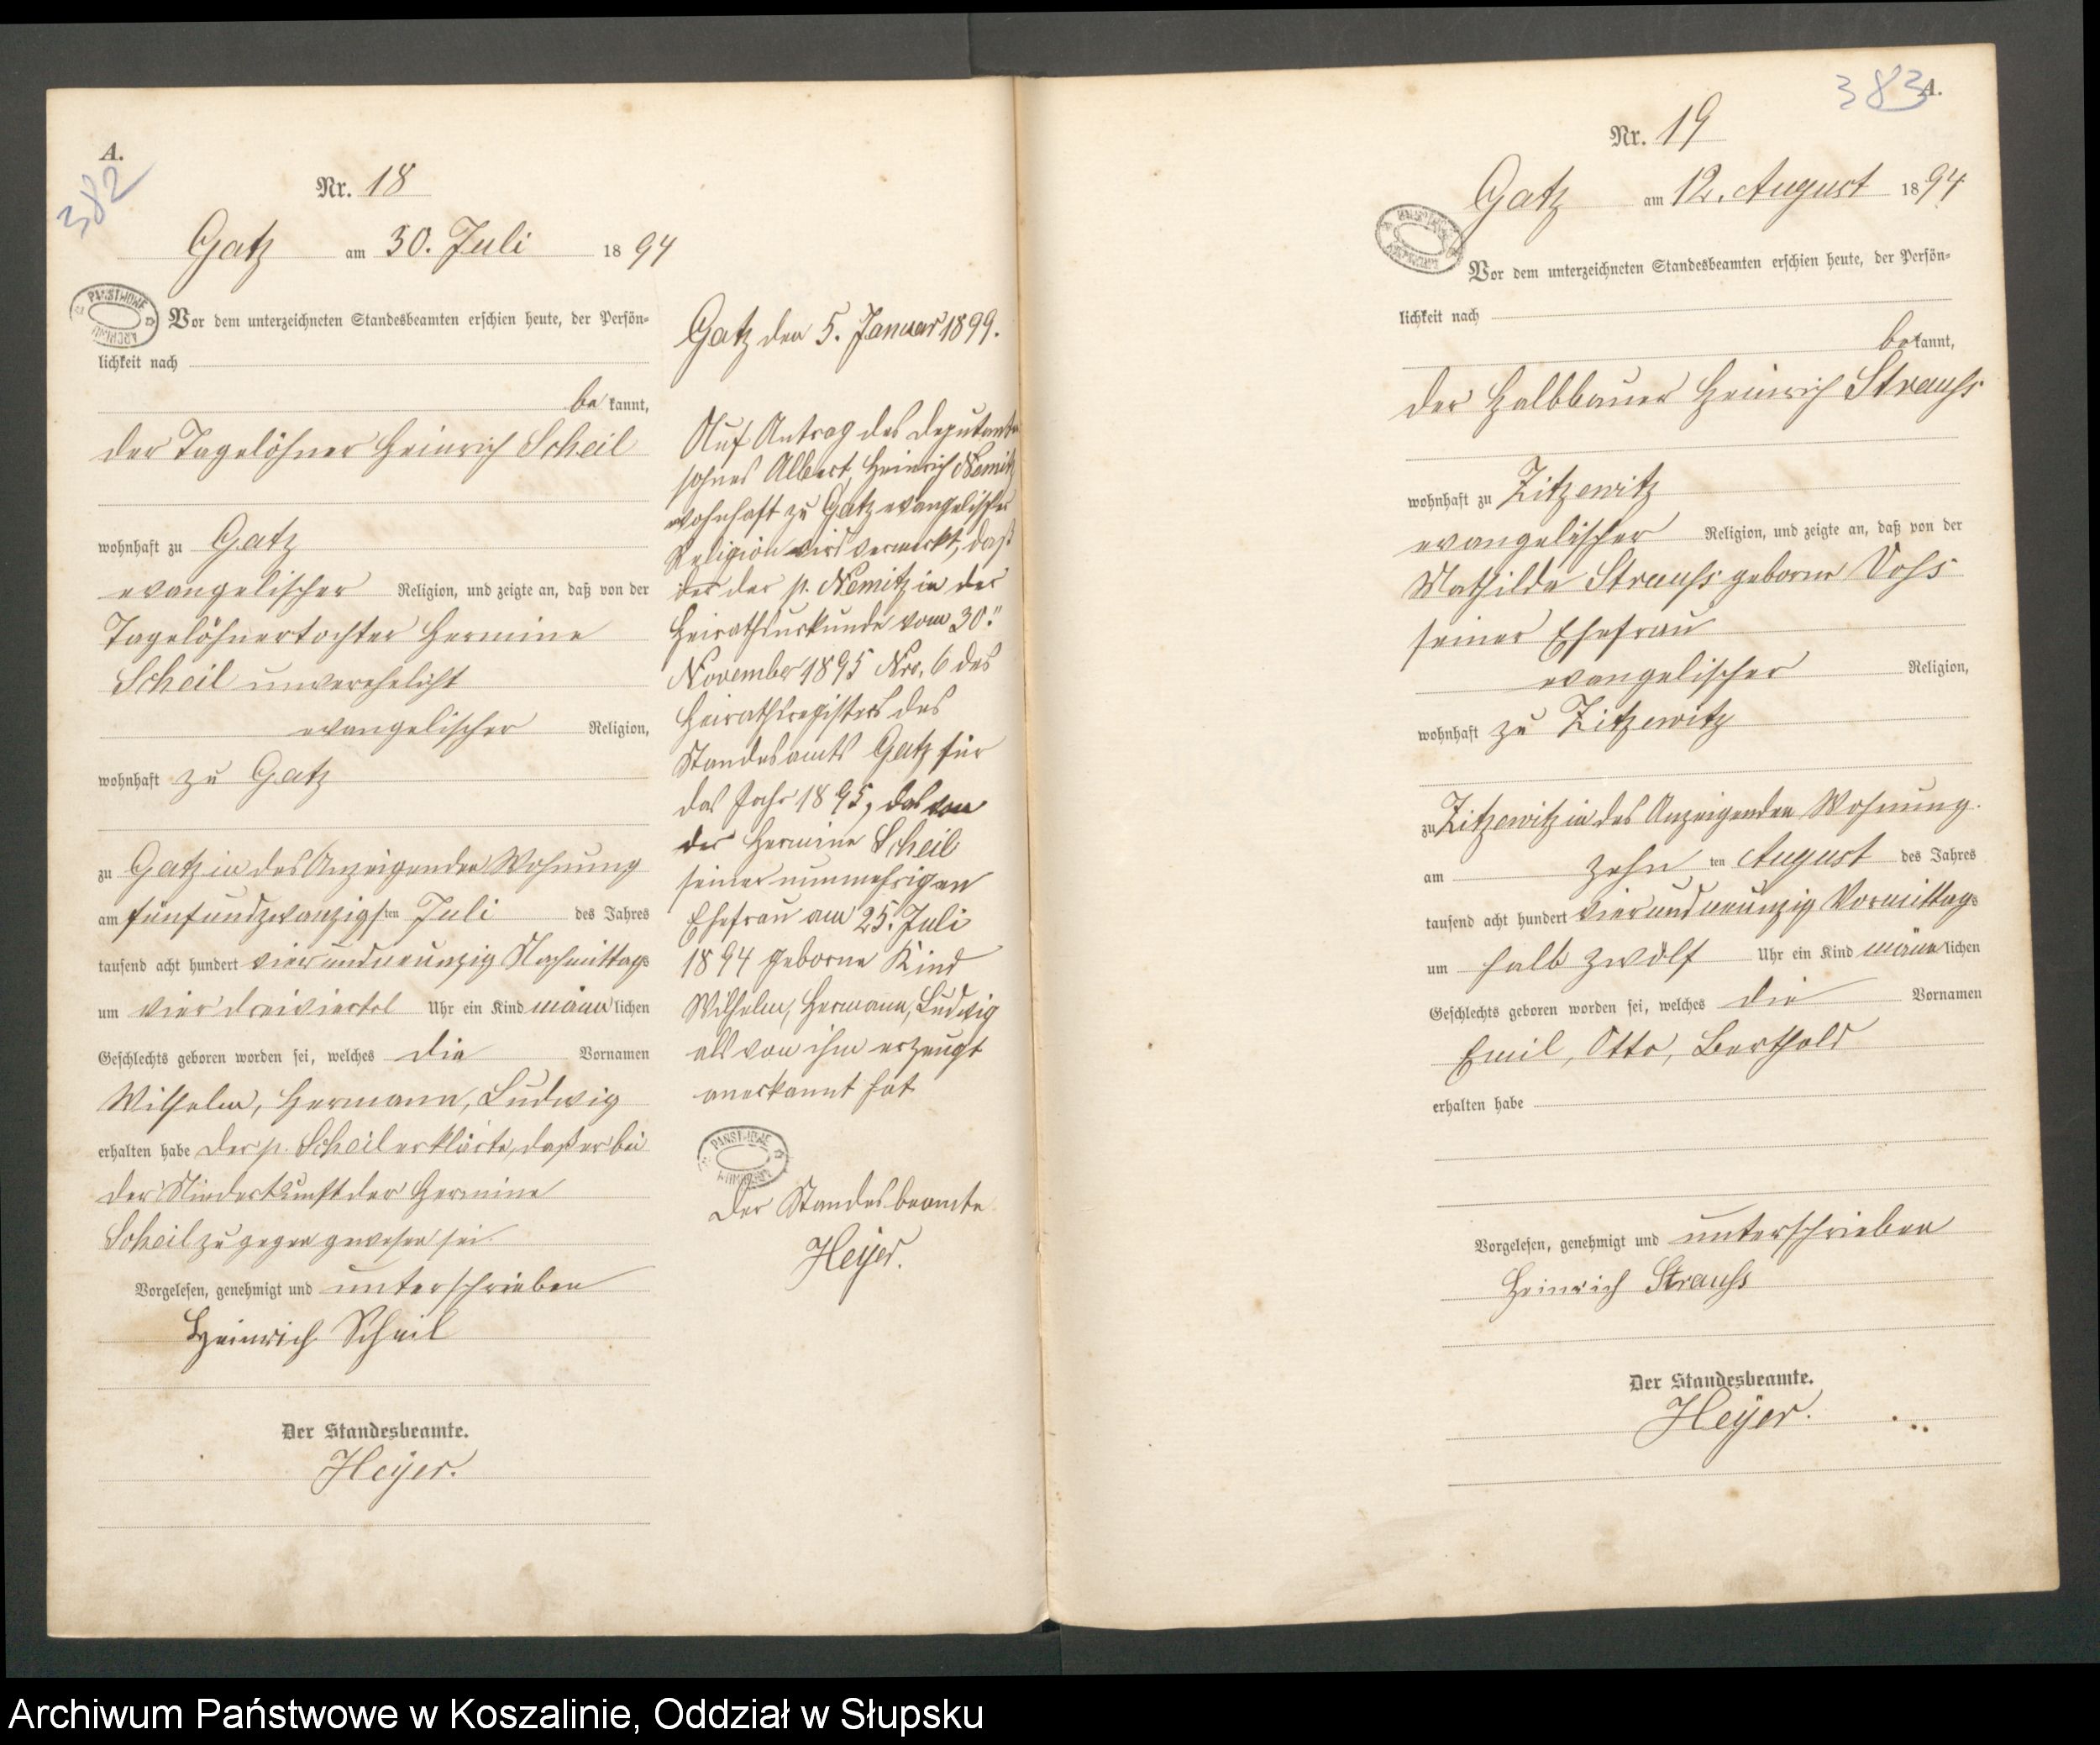 A.
382
Nr. 18
Gatz am 30. Juli 1894
Vor dem unterzeichneten Standesbeamten erschien heute, der Persön-
lichkeit nach
bekannt,
der Tagelöhner Heinrich Scheil
wohnhaft zu Gatz
evangelischer Religion, und zeigte an, daß von der
Tagelöhnertochter Hermine
Scheil unverehelicht
evangelischer Religion,
wohnhaft zu Gatz
zu Gatz in des Anzeigenden Wohnung
am fünfundzwanzigsten Juli des Jahres
tausend acht hundert vierundneunzig Nachmittags
um vier dreiviertel Uhr ein Kind männlichen
Geschlechts geboren worden sei, welches die Vornamen
Wilhelm, Hermann, Ludwig
erhalten habe der p. Scheil erklärte, daß er bei
der Niederkunft der Hermine
Scheil zugegen gewesen sei.
Vorgelesen, genehmigt und unterschrieben
Heinrich Scheil
Der Standesbeamte.
Heyer.
Gatz den 5. Januar 1899.
Auf Antrag des Deputanten
sohnes Albert, Heinrich Nemitz
wohnhaft zu Gatz evangelischer
Religion wird vermerkt, daß
der p. Nemitz in der
Heirathsurkunde vom 30.
November 1895 Nro. 6 des
Heirathsregisters des
Standesamts Gatz für
das Jahr 1895, das von
der Hermine Scheil
seiner nunmehrigen
Ehefrau am 25. Juli
1894 geborne Kind
Wilhelm, Hermann, Ludwig
als von ihm erzeugt
anerkannt hat
PAŃSTWOWE
Der Standesbeamte
Heyer.
383
A.
Nr. 19
Gatz am 12. August 1894
Vor dem unterzeichneten Standesbeamten erschien heute, der Persön-
lichkeit nach
bekannt,
der Halbbauer Heinrich Strauss
wohnhaft zu Zitzewitz
evangelischer Religion, und zeigte an, daß von der
Mathilde Strauss geborne Voss
seiner Ehefrau
evangelischer Religion,
wohnhaft zu Zitzewitz
zu Zitzewitz in des Anzeigenden Wohnung.
am zehn ten August des Jahres
tausend acht hundert vierundneunzig Vormittags
um halb zwölf Uhr ein Kind männlichen
Geschlechts geboren worden sei, welches die Vornamen
Emil, Otto, Berthold
erhalten habe
Vorgelesen, genehmigt und unterschrieben
Heinrich Strauss
Der Standesbeamte.
Heyer.
Archiwum Państwowe w Koszalinie, Oddział w Słupsku